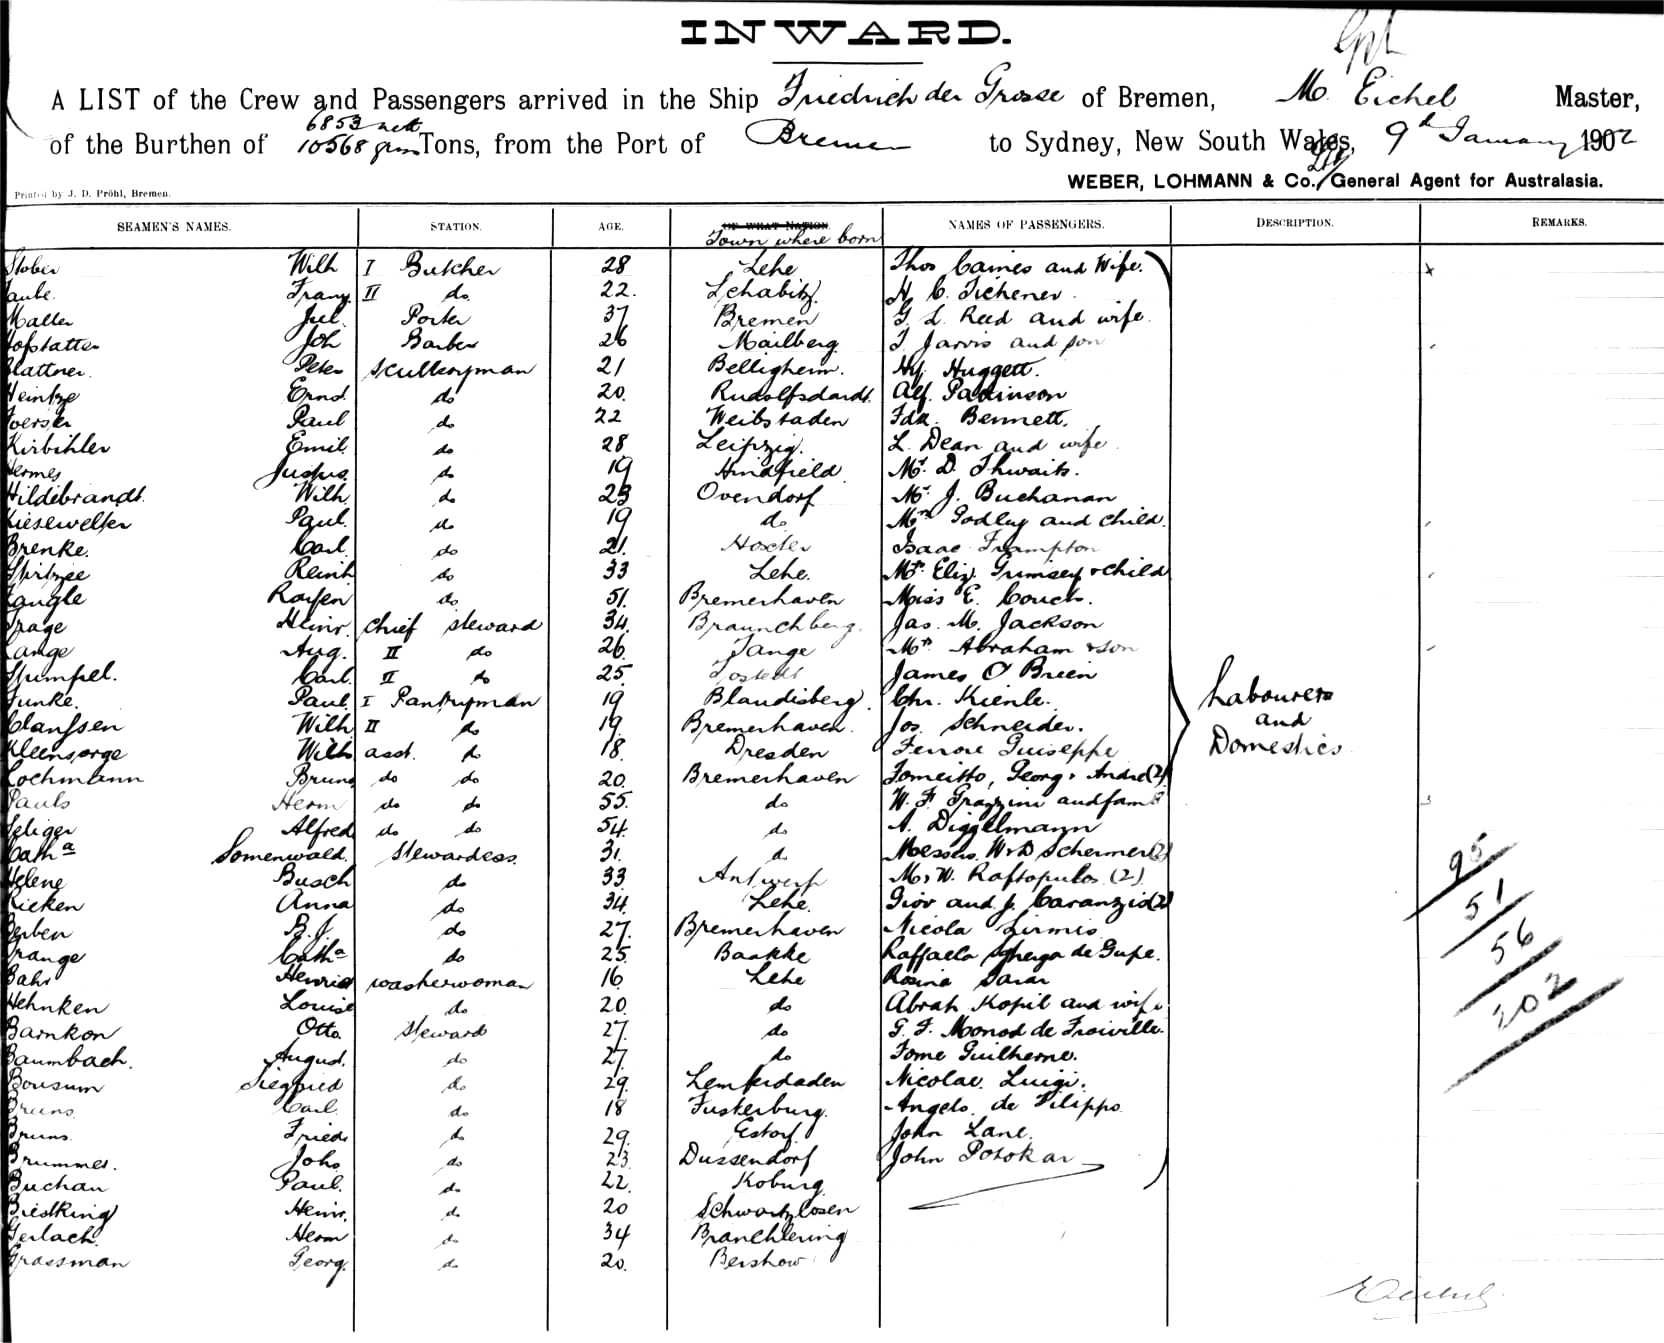 INWARD.
A LIST of the Crew and Passengers arrived in the Ship Friedrich der Grosse of Bremen, M. Eichel Master,
6853 nett
of the Burthen of 10568 grss Tons, from the Port of Bremen to Sydney, New South Wales, 9th January 1902
WEBER, LOHMANN & Co., General Agent for Australasia.
Printed by J. D. Pröhl, Bremen.
SEAMEN'S NAMES. STATION. AGE. OF WHAT NATION NAMES OF PASSENGERS. DESCRIPTION. REMARKS.
Town where born
Stober Wilh I Butcher 28 Lehe Thos Caines and Wife. x
aube Franz II do 22. Lchabitz H. C. Tichener
Maller Jul. Porter 37 Bremen G. L. Reed and wife.
Hofstatter Joh Barber 26 Mailberg T. Jarvis and son
Plattner. Peter Sculleryman 21 Belligheim. Hy. Huggett.
Heintze Ernst do 20. Rudolfsdardt Alf. Parkinson
Foerster Paul do 22 Weibstaden Fdk. Bennett.
Kirbihler Emil do 28 Leipzig. L. Dean and wife
Hermes Justus do 19 Hindfield Mr. D. Thwaits.
Hildebrandt. Wilh do 23 Ovendorf Mr. J. Buchanan
Kiesewetter Paul. do 19 do Mrs Godley and child.
Brenke. Carl. do 21. Hoxter Isaac Frampton
Spitzee Reinh do 33 Lehe. Mrs Eliz. Grimsey & child
Zangle do 51. Bremerhaven Miss E. Couch.
Trage Heinr. chief steward 34. Braunchberg. Jas. M. Jackson
Lange Aug. II do 26. Tange Mrs Abraham & son
Stumpel. Carl. II do 25. Tostedt James O'Brien
Funke. Paul. I Pantryman 19 Blandisberg. Chr. Kienle. Labourers
Clanssen Wilh II do 19. Bremerhaven. Jos. Schneider. and
Kleensorge Wilh asst. do 18. Dresden Ferrore Guiseppe Domestics
Lochmann Bruno do do 20. Bremerhaven Tomeitto, Georg & Andre (2)
Pauls Herm do do 55. do W. F. Grazzini and fam
Seliger Alfred do do 54. do A. Diggelmann
Catha Somenwald. stewardess. 31. do Messrs. W & D Schermer (2) 95
Helene Busch do 33. Antwerp M. W. Raftopulos (2)
Rieken Anna do 34. Lehe. Giov and J. Caranzio (2) 51
Gerben B. J. do 27. Bremerhaven Nicola Lirmis
Prange Catha do 25. Baakke Raffaela Sgherga de Gupe. 56
Bahr Henrie washerwoman 16. Lehe Rosina Saran
Hehnken Louise do 20. do Abrah Kopil and wife 202
Barnkon Otto. Steward 27. do G. F. Monod de Froiville.
Baumbach. August. do 27. do Tome Guilherne.
Bousum Siegfried do 29. Lemkerdaden Nicolae Luigi.
Bruns Carl do 18 Fusterburg. Angelo de Filippo
Bruns Friedr do 29. Estorf. John Lane.
Brummer. Johs do 23. Dussendorf John Potokar
Buchan Paul. do 22. Koburg
Biedking Heinr. do 20 Schwartzlosen
Gerlach. Herm do 34 Branchlering
Grassman Georg. do 20. Bershow
Eichel